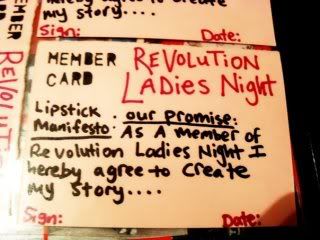 hereby agree to create
my story....
Sign: Date:
MEMBER
CARD
REVOLUTION
LADIES Night
Lipstick
Manifesto: our promise:
As A member of
Revolution Ladies Night I
hereby agree to create
my story....
Sign: Date:
MEMBER
REVOLUT